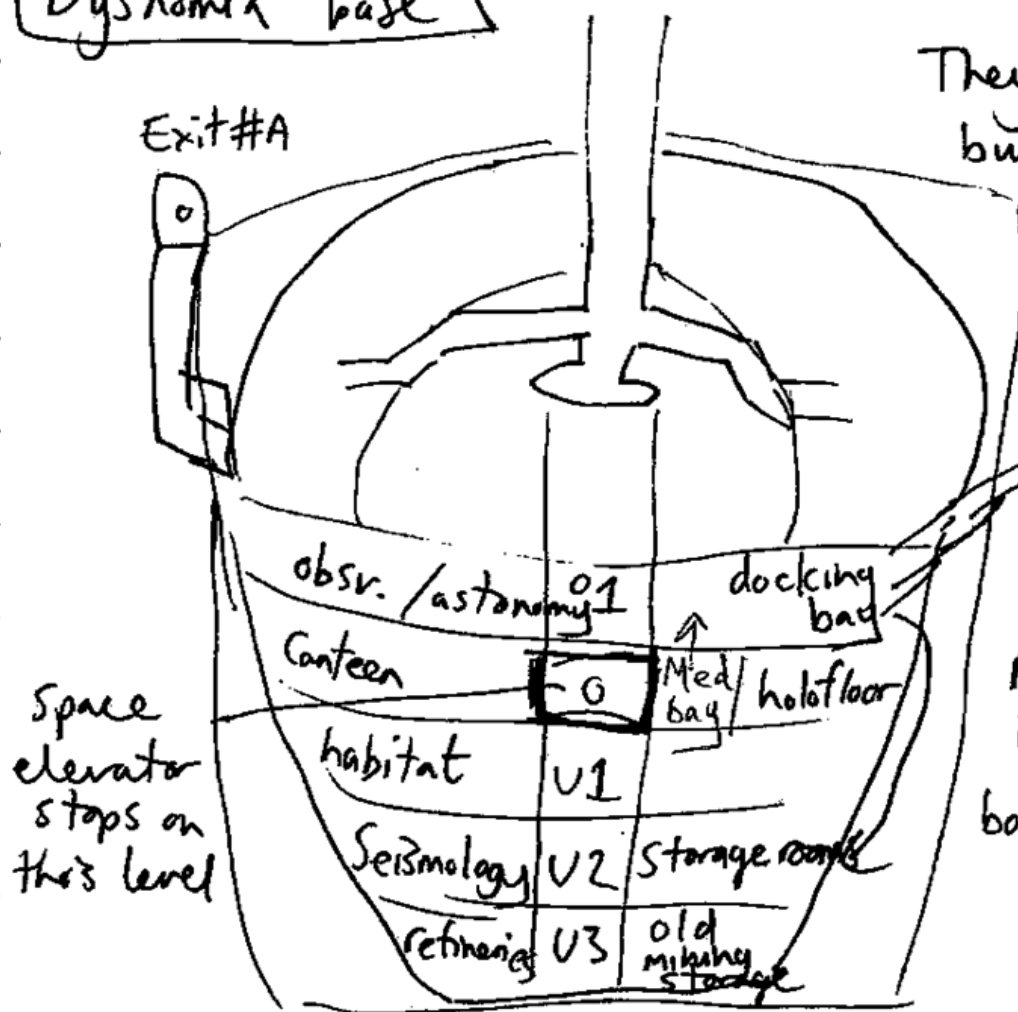 Dysnomia base
Exit #A
The
bu
obsr. /astonomy
01
docking
bay
Canteen
0
Med
bay
holofloor
Space
elevator
stops on
this level
habitat
U1
bo
Seismology
U2
Storage rooms
refineries
U3
old
mining
storage